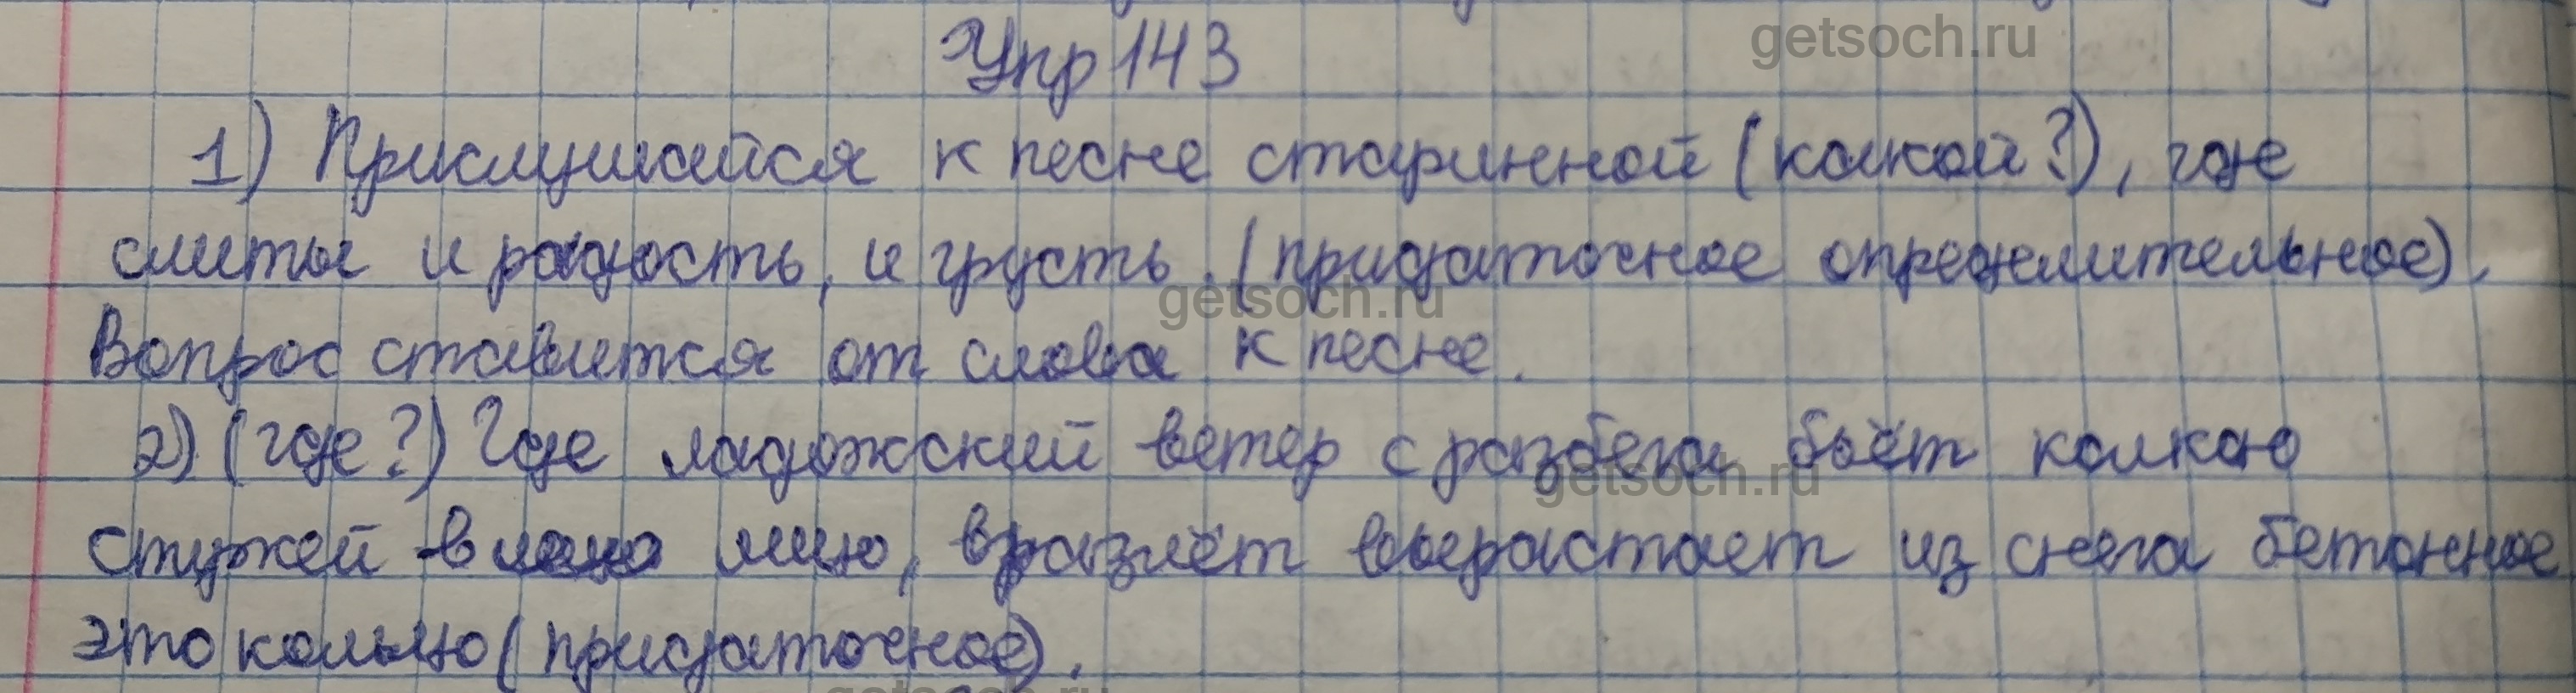 Упр 143
getsoch.ru
1) Прислушайся к песне старинной (какой?), где
слиты и радость, и грусть. (придаточное определительное).
getsoch.ru
Вопрос ставится от слова к песне.
2) (где?) Где ладожский ветер с разбега бьёт колкою
getsoch.ru
стужей в лицо, вразлёт вырастает из снега бетонное
это кольцо (придаточное).
getsoch.ru